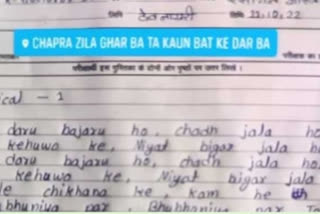 देव नागरी 11.10.22
CHAPRA ZILA GHAR BA TA KAUN BAT KE DAR BA
परीक्षार्थी इस पुस्तिका के दोनों ओर पृष्ठों पर उत्तर लिखें ।
ical - 1
daru bajaru ho, chadh jala ho
kehuwa ke, Niyat bigar jala ho
daru bajaru ho, chadh jala ho,
kehuwa ke, Niyat bigar jala
le chikhana ke, kam he
bhuniya par, Bhubhaniya par